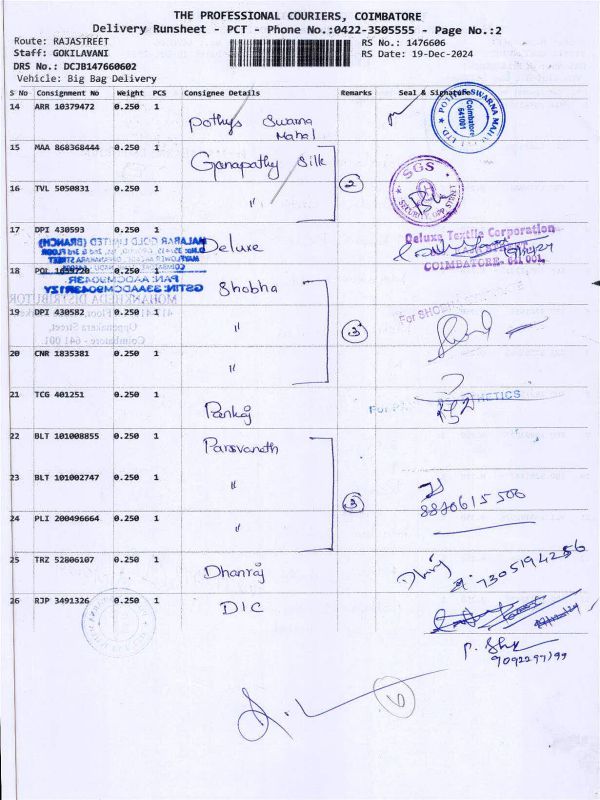 THE PROFESSIONAL COURIERS, COIMBATORE
Delivery Runsheet - PCT - Phone No.:0422-3505555 - Page No.:2
Route: RAJASTREET
RS No.: 1476606
Staff: GOKILAVANI
RS Date: 19-Dec-2024
DRS No.: DCJB147660602
Vehicle: Big Bag Delivery
S No Consignment No Weight PCS Consignee Details Remarks Seal & Signature
14 ARR 10379472 0.250 1 Pothys Swarna Mahal
POTHYS SWARNA MAHAL
Coimbatore
641001
15 MAA 868368444 0.250 1 Ganapathy Silk
16 TVL 5050831 0.250 1 " 2
SGS
SECURITY
17 DPI 430593 0.250 1 Deluxe
Deluxe Textile Corporation
COIMBATORE- 641 001.
MALABAR GOLD LIMITED (BRANCH)
18 POL 1659720 0.250 1 Shobha
GSTIN: 33AADCM9043R1ZY
MOHANKHEDA DISTRIBUTOR
Oppanakara Street,
Coimbatore - 641 001.
19 DPI 430582 0.250 1 " 3
For SHOBHA
20 CNR 1835381 0.250 1 "
21 TCG 401251 0.250 1 Pankaj
22 BLT 101008855 0.250 1 Parsvanath
23 BLT 101002747 0.250 1 " 3
8870615500
24 PLI 200496664 0.250 1 "
25 TRZ 52806107 0.250 1 Dhanraj
7305194256
26 RJP 3491326 0.250 1 DIC
9092297199
6